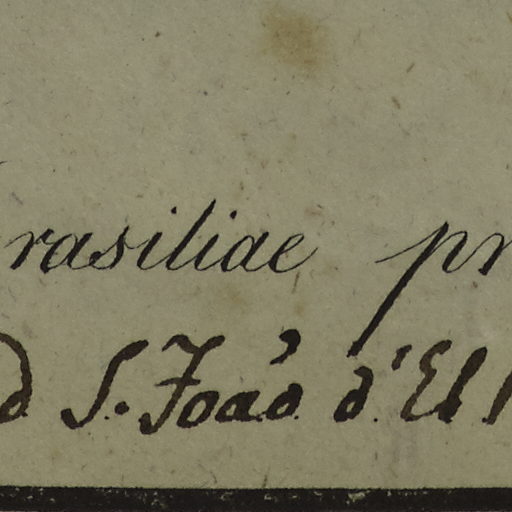 rasiliae pr
d S. Joaõ d'El